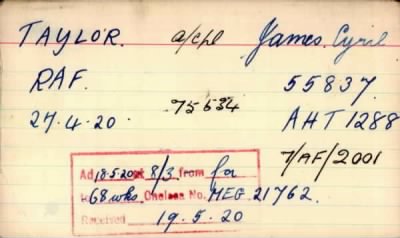 TAYLOR. a/cpl James Cyril
RAF. 55837.
75534
27.4.20. AHT 1288
7/AF/2001
Ad 18.5.20 at 8/3 from for
to 68 wks Chelsea No. MEG 21762.
Received 19.5.20